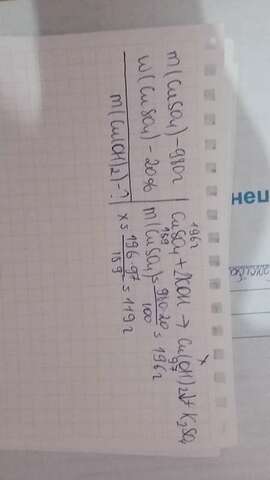 m(CuSO4) - 980г
W(CuSO4) - 20%
m(Cu(OH)2) - ?
196г x
CuSO4 + 2KOH → Cu(OH)2↓ + K2SO4
159 97
m(CuSO4) = 980·20 / 100 = 196г
x = 196·97 / 159 = 119г
нец